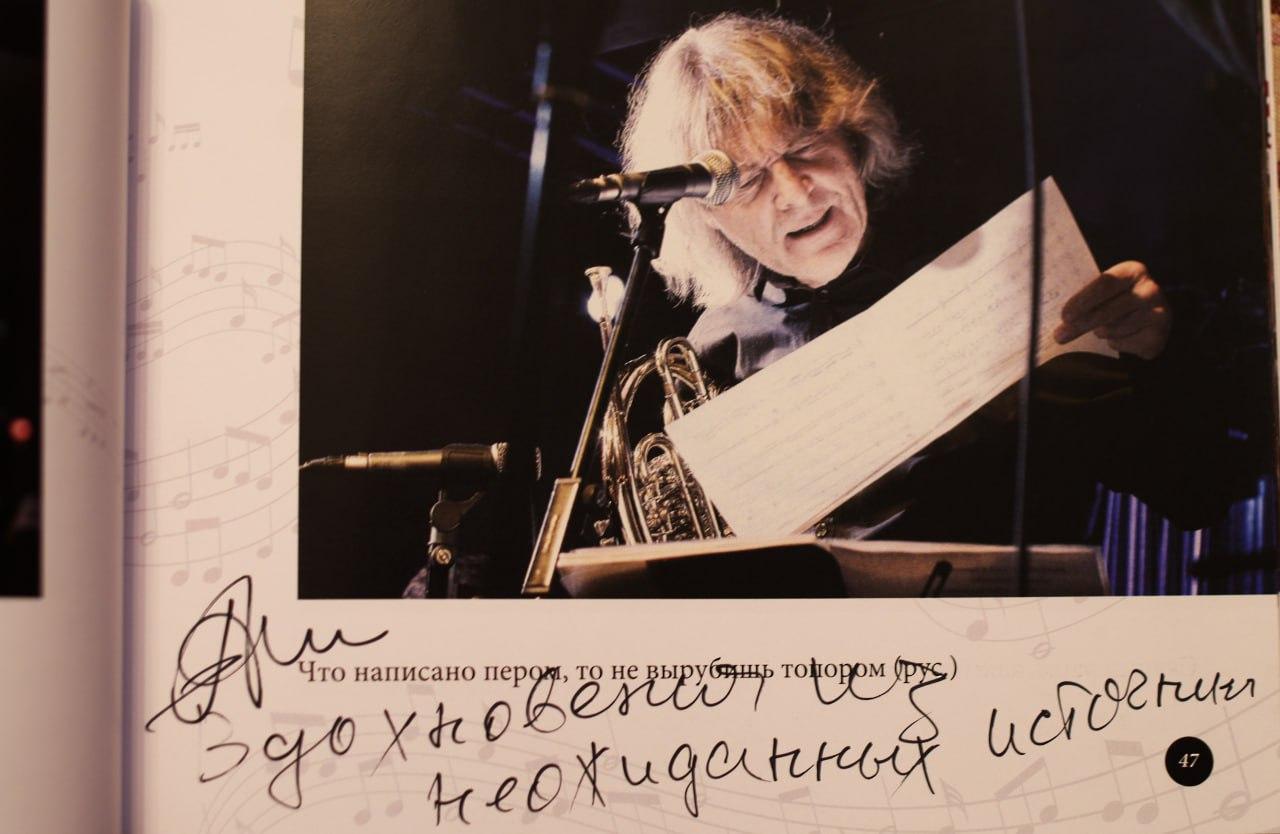 Что написано пером, то не вырубишь топором (рус.)
здохновения из
неожиданных источник
47